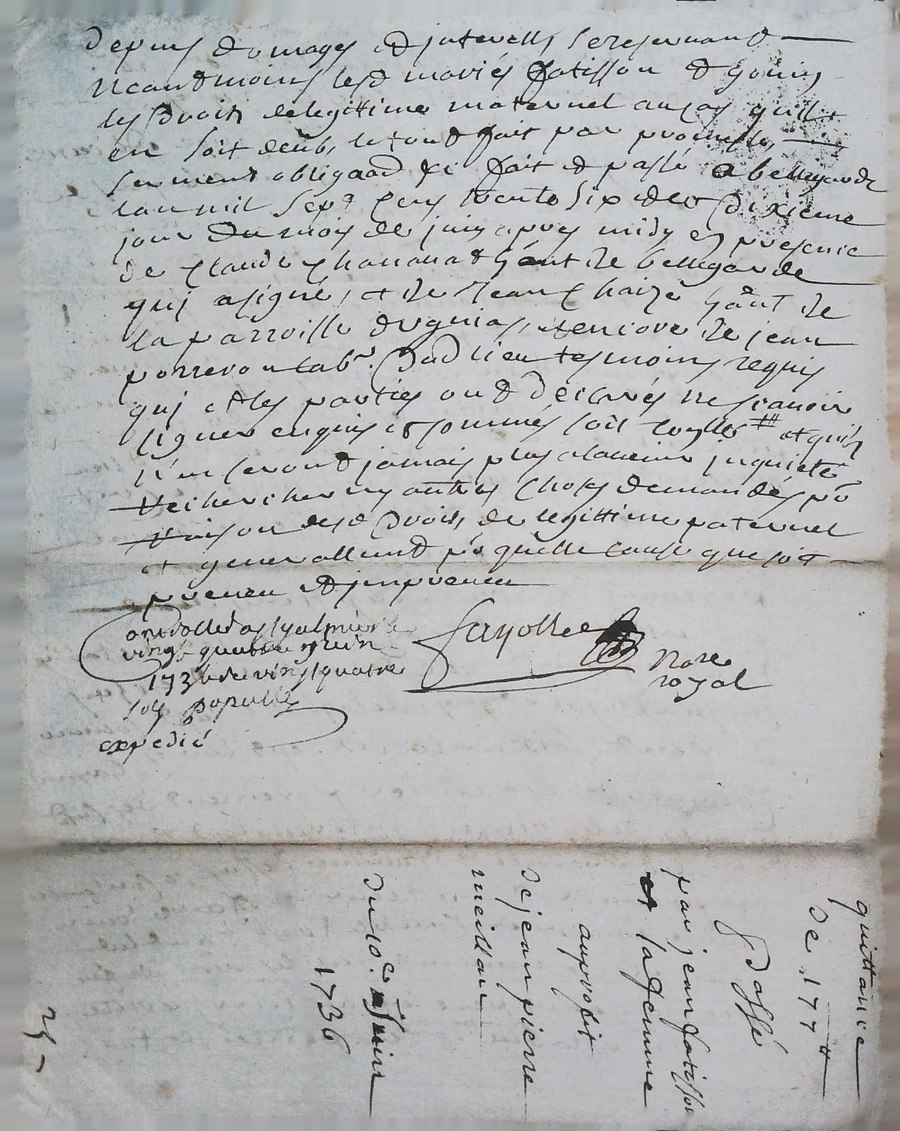 depens domages et interests se reservant
neantmoins lesd mariés fatisson et gonin
les droits de legittime maternel au cas quil
en soit deub, le tout fait par promesse,
serment obligaon &c fait et passé a bellegarde
lan mil sept cens trente six et le dixieme
jour du mois de juin apres midy en presence
de Claude de bellegarde
qui a signe, et de Jean Chaize de
la parroisse encore de jean
labr dud lieu tesmoins requis
qui et les parties ont declarés ne scavoir
signer enquis et sommés soit et quils
n'en seront jamais plus a ladvenir inquietés
rechercher ny autres choses demandés pr
raison desd droits de legittime paternel
et generallement pr quelle cause que soit
preveu et jmpreveu
Controllé a st galmier le
vingt quatre juin
1736 vingt quatre
sols
expedié
fayolle
Nore
royal
quittance
de 177 tt
passé
par jean fatisson
et sa femme
au profit
de jean pierre
meillan
du 10e Juin
1736